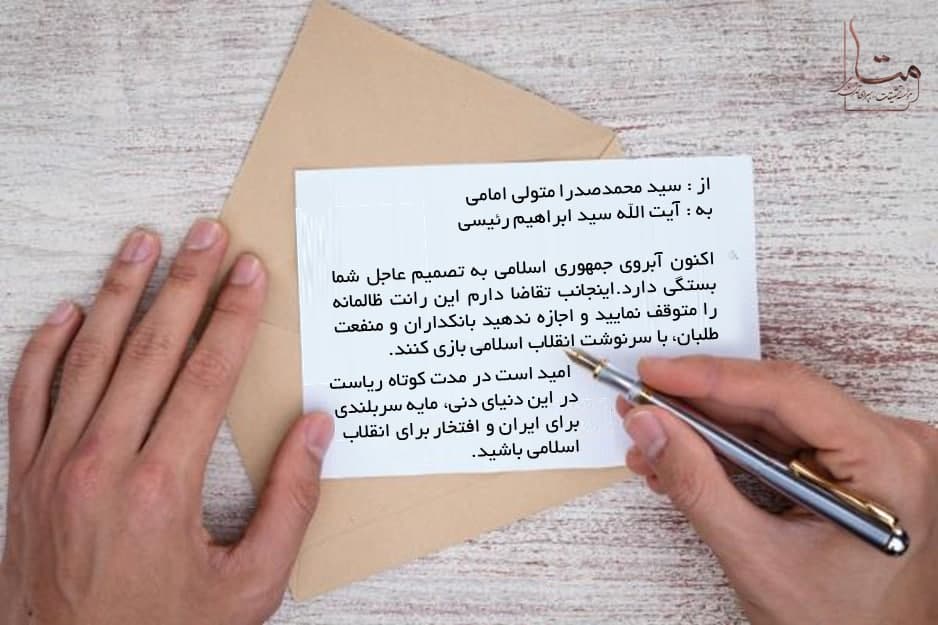 متا
از : سید محمدصدرا متولی امامی
به : آیت اللّه سید ابراهیم رئیسی
اکنون آبروی جمهوری اسلامی به تصمیم عاجل شما
بستگی دارد.اینجانب تقاضا دارم این رانت ظالمانه
را متوقف نمایید و اجازه ندهید بانکداران و منفعت
طلبان، با سرنوشت انقلاب اسلامی بازی کنند.
امید است در مدت کوتاه ریاست
در این دنیای دنی، مایه سربلندی
برای ایران و افتخار برای انقلاب
اسلامی باشید.